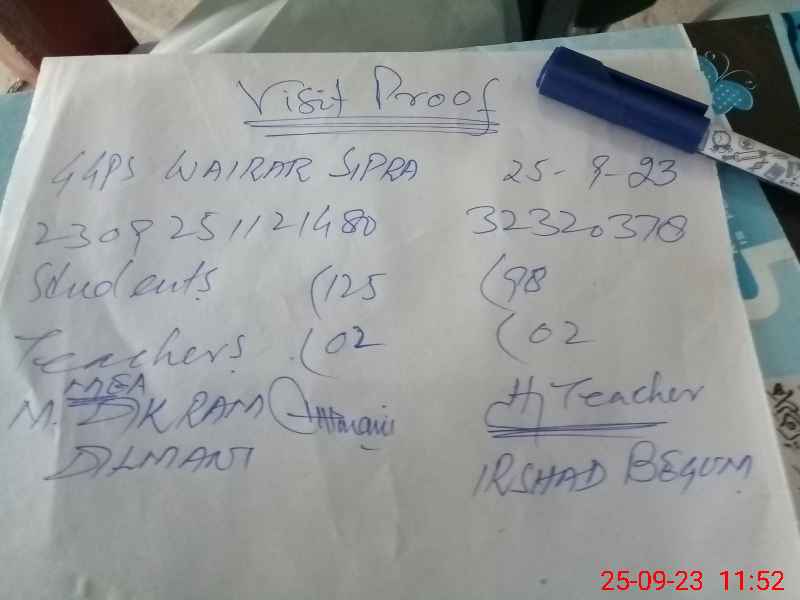 Visit Proof
GGPS WAIRAR SIPRA 25-9-23
2309251121480 32320378
Students (125 (98
Teachers (02 (02
MEA
M. IKRAM
H/Teacher
DILMANI
IRSHAD BEGUM
25-09-23 11:52